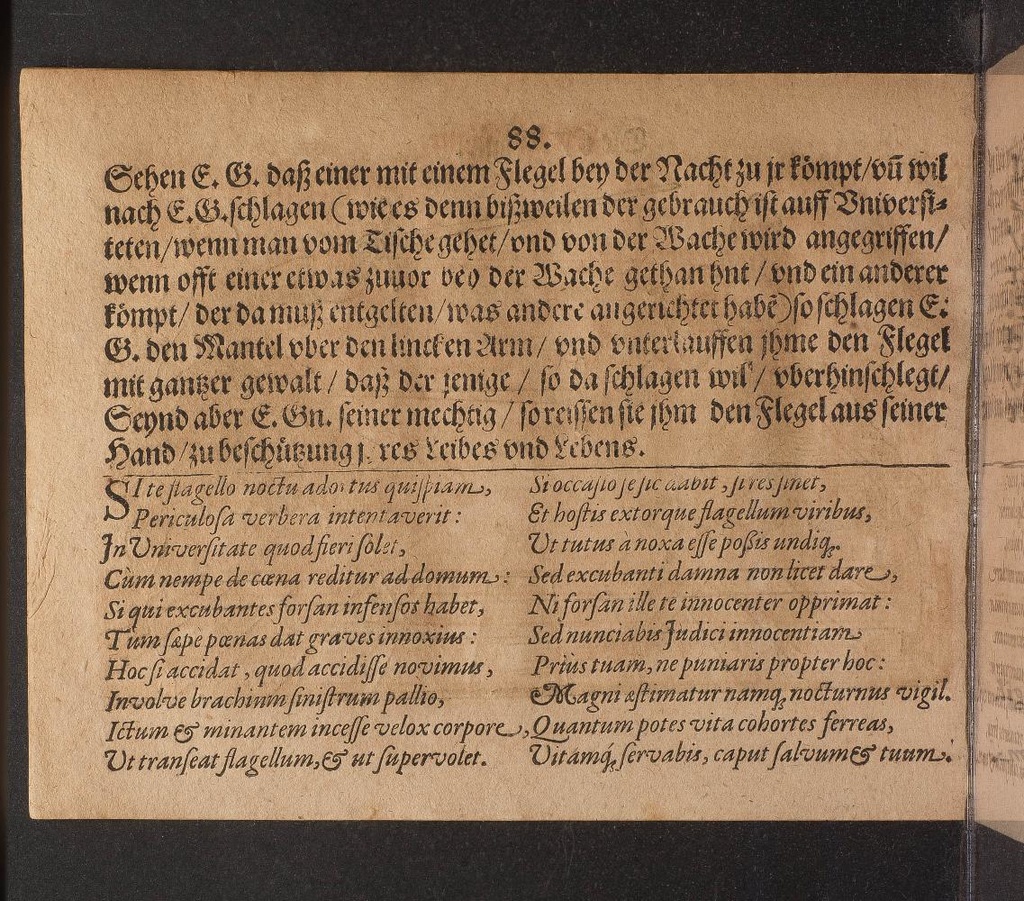 88.
Sehen E. G. daß einer mit einem Flegel bey der Nacht zu jr kömpt/vñ wil
nach E.G.schlagen (wie es denn bißweilen der gebrauch ist auff Vniversi-
teten/wenn man vom Tische gehet/vnd von der Wache wird angegriffen/
wenn offt einer etwas zuuor bey der Wache gethan hnt / vnd ein anderer
kömpt/ der da muß entgelten/was andere angerichtet habẽ) so schlagen E.
G. den Mantel vber den lincken Arm/ vnd vnterlauffen jhme den Flegel
mit gantzer gewalt / daß der jenige / so da schlagen wil/ vberhinschlegt/
Seynd aber E. Gn. seiner mechtig / so reissen sie jhm den Flegel aus seiner
Hand/zu beschützung jres Leibes vnd Lebens.
SI te flagello noctu adortus quispiam,
Periculosa verbera intentaverit:
In Universitate quod fieri solet,
Cùm nempe de cœna reditur ad domum:
Si qui excubantes forsan infensos habet,
Tum sæpe pœnas dat graves innoxius:
Hoc si accidat, quod accidisse novimus,
Involve brachium sinistrum pallio,
Ictum & minantem incesse velox corpore,
Ut transeat flagellum, & ut supervolet.
Si occasio se sic dabit, si res sinet,
Et hostis extorque flagellum viribus,
Ut tutus à noxa esse poßis undiq;.
Sed excubanti damna non licet dare,
Ni forsan ille te innocenter opprimat:
Sed nunciabis Judici innocentiam
Priùs tuam, ne puniaris propter hoc:
Magni æstimatur namq; nocturnus vigil.
Quantum potes vita cohortes ferreas,
Vitamq́; servabis, caput salvum & tuum.